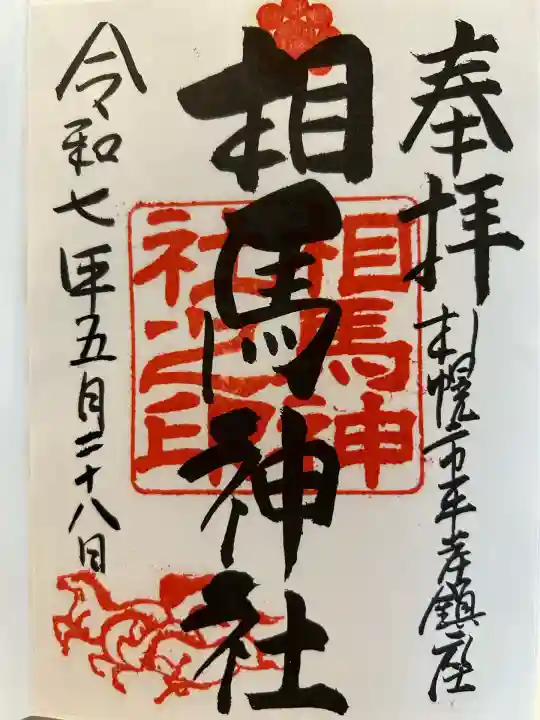 奉拝
札幌市平岸鎮座
相馬神社
相馬神社之印
令和七年五月二十八日